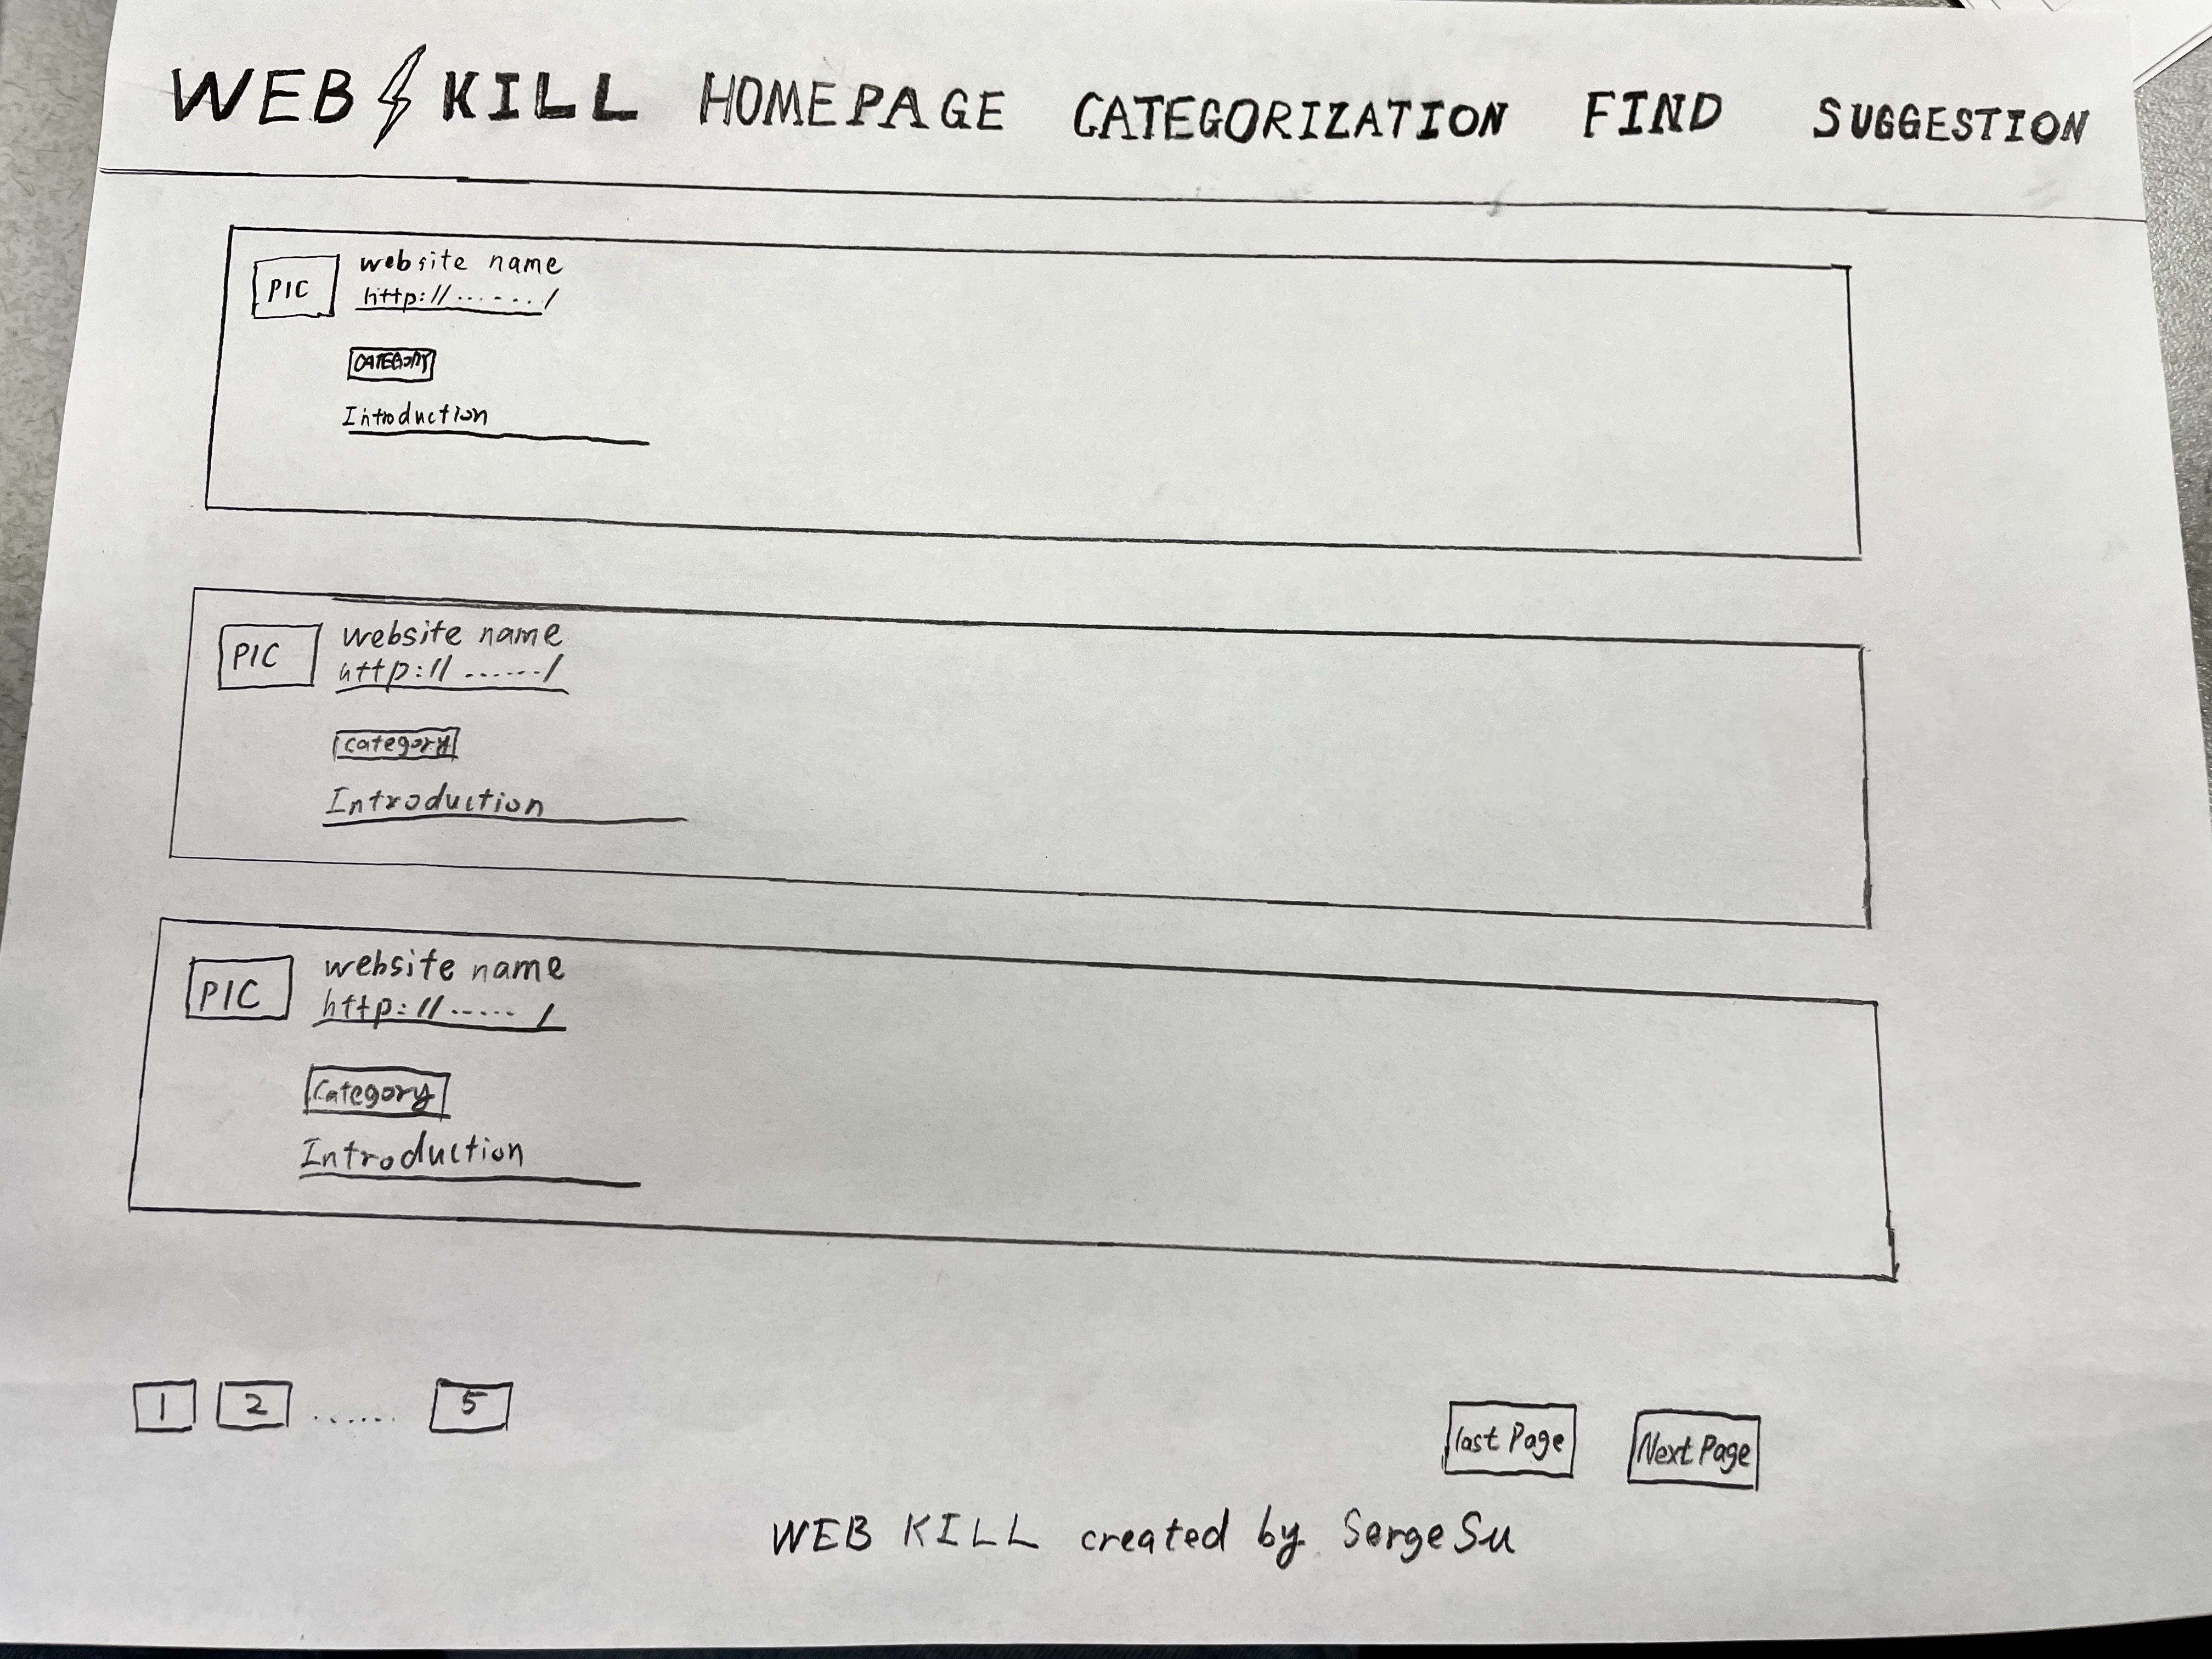 WEB KILL HOMEPAGE CATEGORIZATION FIND SUGGESTION
PIC website name
http://......./
CATEGORY
Introduction
PIC website name
http://....../
category
Introduction
PIC website name
http://...../
Category
Introduction
1 2 ...... 5 last Page Next Page
WEB KILL created by SergeSu